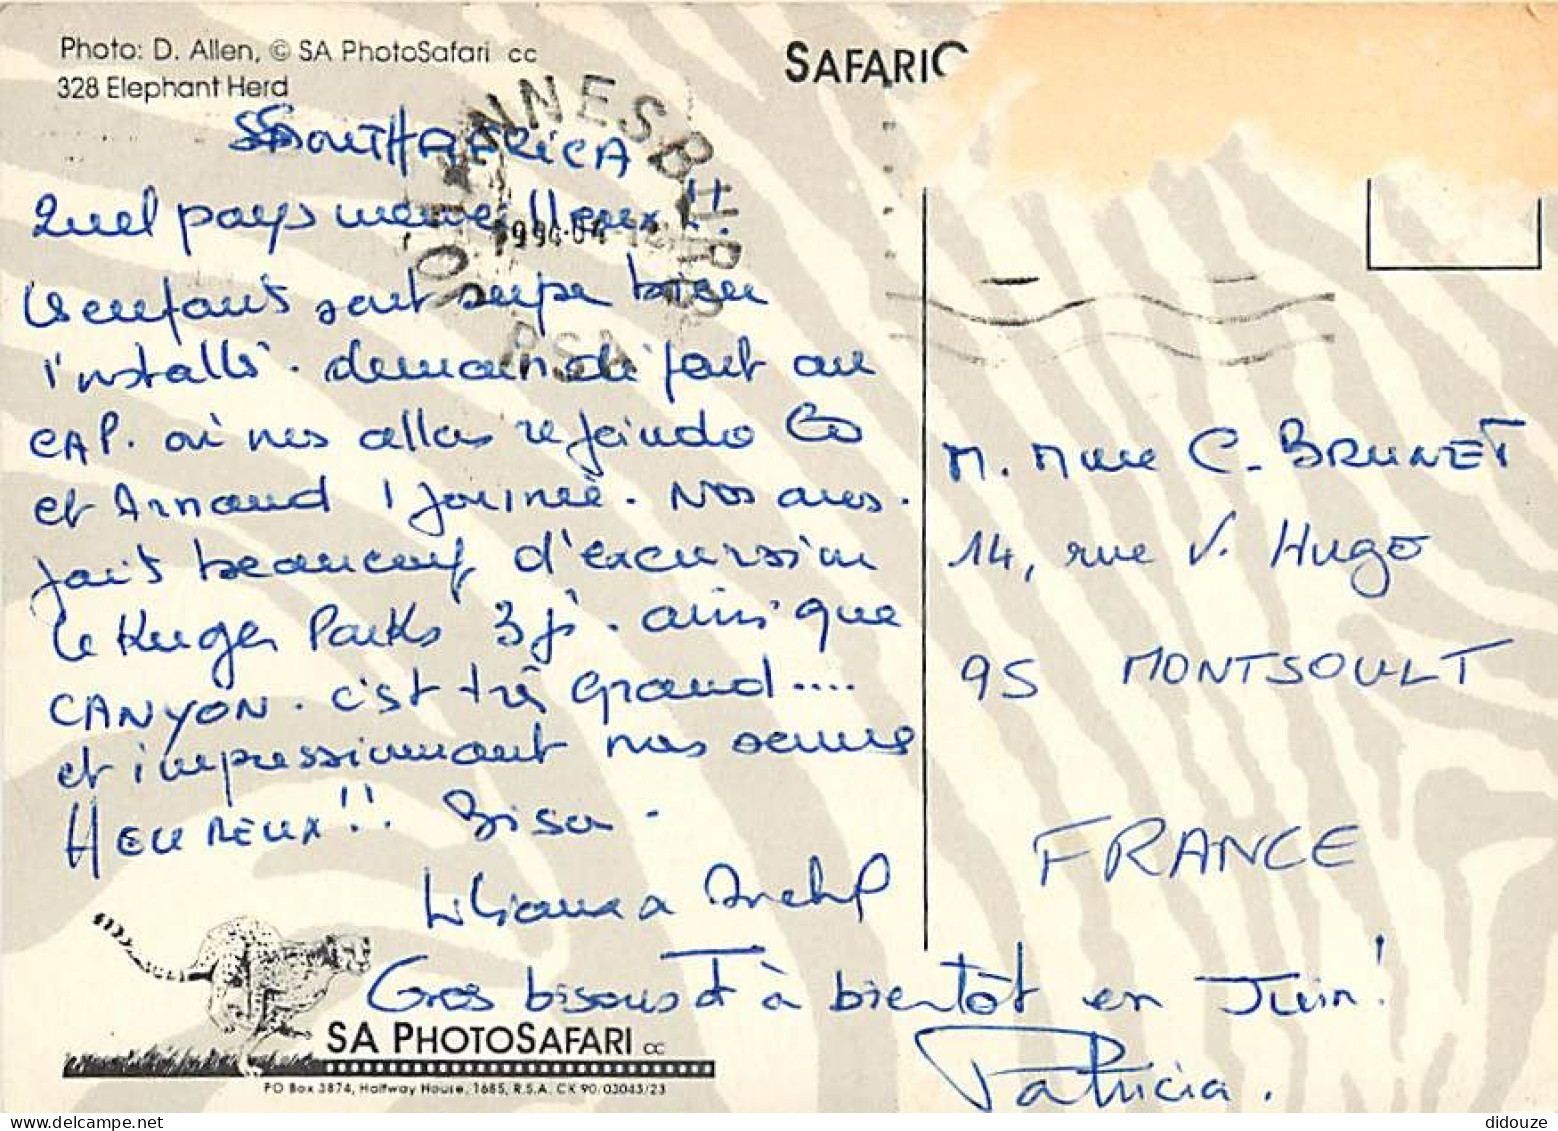 Photo: D. Allen, © SA PhotoSafari cc
328 Elephant Herd
SAFARIC
JOHANNESBURG
1994-04-12
RSA
SOUTH AFRICA
Quel pays merveilleux!!
les enfants sont super bien
installé. demain di fait au
CAP. où nos allas rejoindo
et Arnaud 1 journée. Nos avs.
fait beaucoup d'excursion
le Kruger Parks 3 js. ainsi que
CANYON. c'est trè grand....
et impressionnant nos somme
HEUREUX!! Bisou.
Liliane
Gros bisous et à bientôt en Juin!
Patricia.
M. Mme C. BRUNET
14, rue V. Hugo
95 MONTSOULT
FRANCE
SA PHOTOSAFARI cc
PO Box 3874, Halfway House, 1685, R.S.A. CK 90/03043/23
didouze